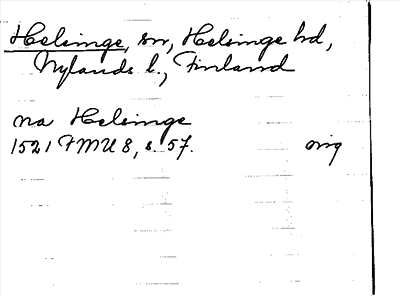 Helsinge, sn, Helsinge hd,
Nylands l., Finland
na Helsinge
1521 FMU 8, s. 57. orig